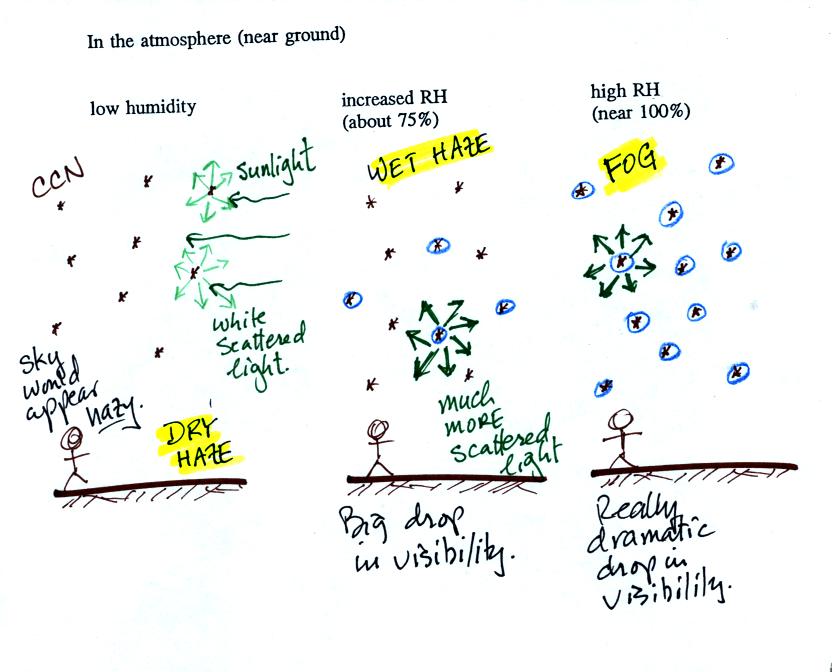 In the atmosphere (near ground)
low humidity
CCN
sunlight
white
scattered
light.
sky
would
appear
hazy.
DRY
HAZE
increased RH
(about 75%)
WET HAZE
much
MORE
scattered
light
Big drop
in visibility.
high RH
(near 100%)
FOG
Really
dramatic
drop in
visibility.